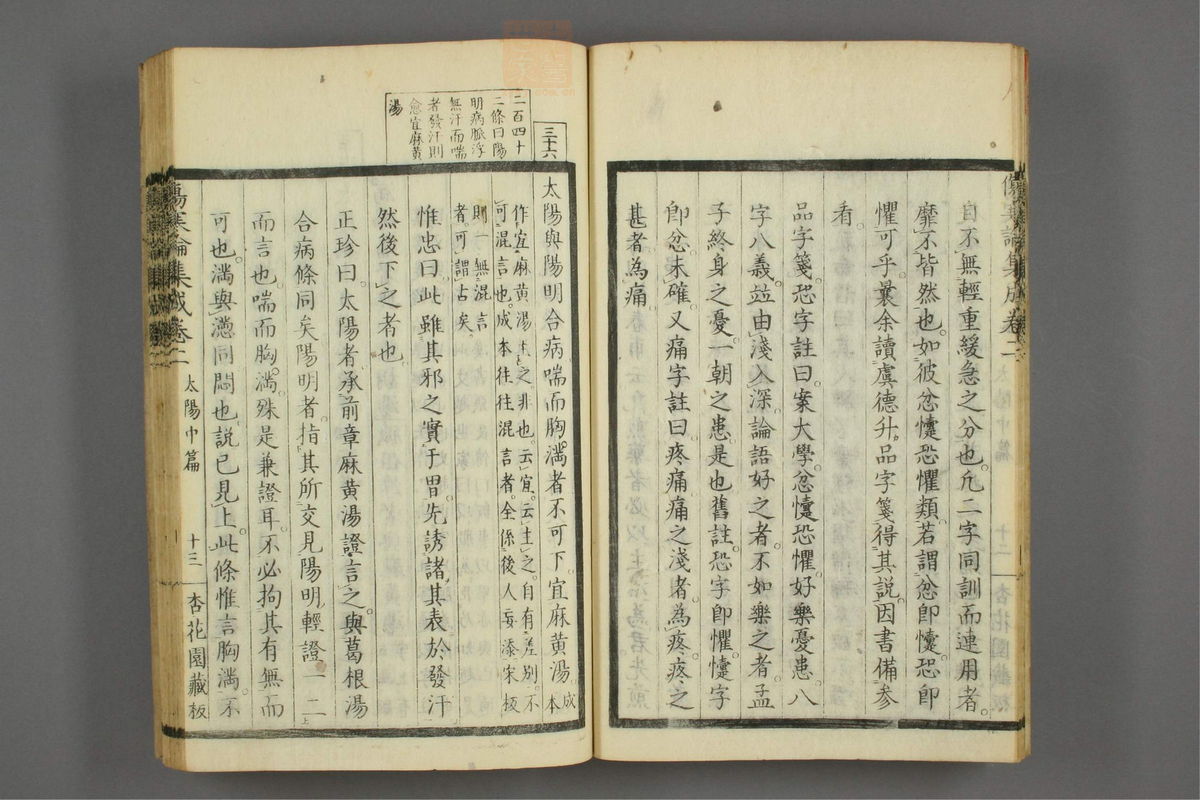 自不無輕重緩急之分也。凡二字同訓而連用者。
靡不皆然也。如彼忿懥恐懼類。若謂忿即懥。恐即
懼可乎。曩余讀虞德升。品字箋。得其說。因書備參
看。
品字箋。恐字註曰。案大學。忿懥恐懼。好樂憂患。八
字八義。竝由淺入深。論語好之者。不如樂之者。孟
子終身之憂。一朝之患是也。舊註。恐字即懼。懥字
即忿。未確。又痛字註曰。疼痛。痛之淺者。為疼。疼之
甚者。為痛。
三十六
太陽與陽明合病。喘而胸滿者。不可下。宜麻黃湯。成本
作宜麻黃湯主之。非也。云宜。云主之。自有差別。不
可混言也。成本往往混言者。全係後人妄添。宋板
則一無混言
者。可謂古矣。
二百四十
二條曰陽
明病脈浮
無汗而喘
者發汗則
愈宜麻黃
湯
惟忠曰。此雖其邪之實于胃。先誘諸其表於發汗
然後下之者也。
正珍曰。太陽者。承前章麻黃湯證言之。與葛根湯
合病條同矣。陽明者。指其所交見陽明輕證一二
而言也。喘而胸滿。殊是兼證耳。不必拘其有無而
可也。滿與懣同。悶也。說已見上。此條惟言胸滿。不
傷寒論集成卷二 太陽中篇 十三 杏花園藏板